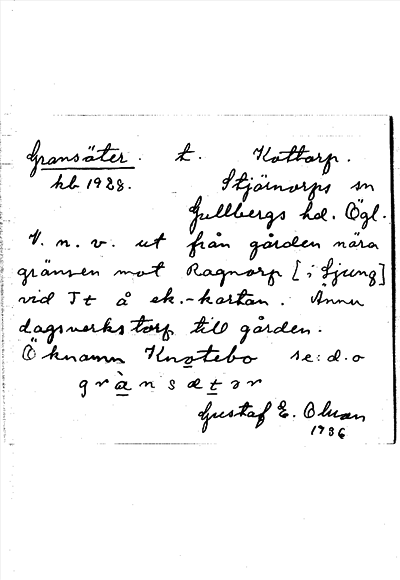 Gransäter. t. Kottorp.
kb 1928. Stjärnorps sn
Gullbergs hd. Ögl.
V. n. v. ut från gården nära
gränsen mot Ragnorp [i Ljung]
vid Tt å ek.-kartan. Ännu
dagsverkstorp till gården.
Öknamn Knotebo se: d. o
grànsætər
Gustaf E. Olsson
1936